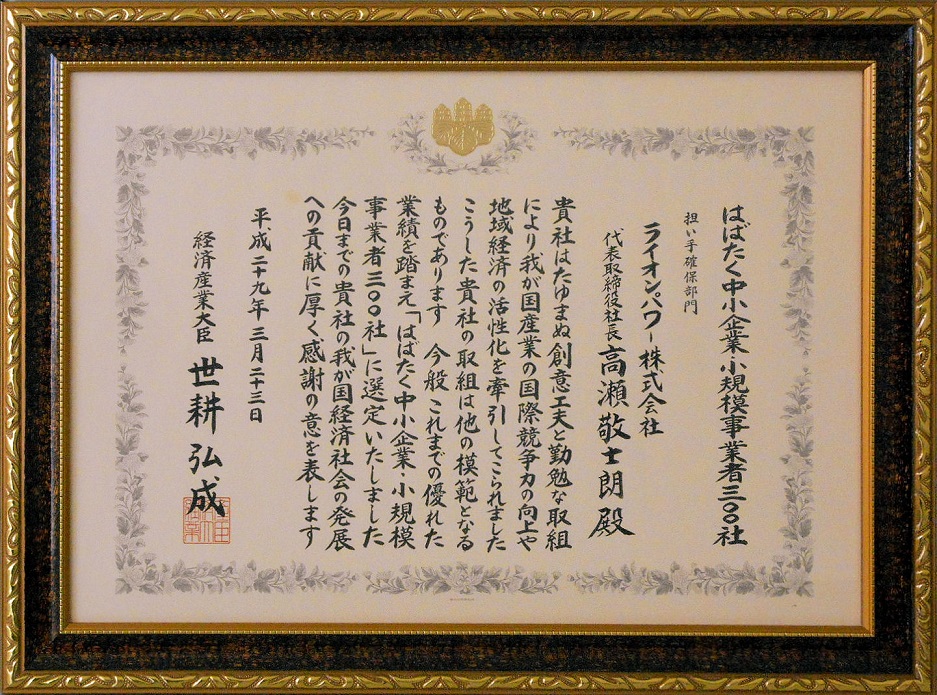 はばたく中小企業・小規模事業者三〇〇社
担い手確保部門
ライオンパワー株式会社
代表取締役社長 高瀬敬士朗殿
貴社はたゆまぬ創意工夫と勤勉な取組
により我が国産業の国際競争力の向上や
地域経済の活性化を牽引してこられました
こうした貴社の取組は他の模範となる
ものであります 今般これまでの優れた
業績を踏まえ「はばたく中小企業・小規模
事業者三〇〇社」に選定いたしました
今日までの貴社の我が国経済社会の発展
への貢献に厚く感謝の意を表します
平成二十九年三月二十三日
経済産業大臣 世耕弘成